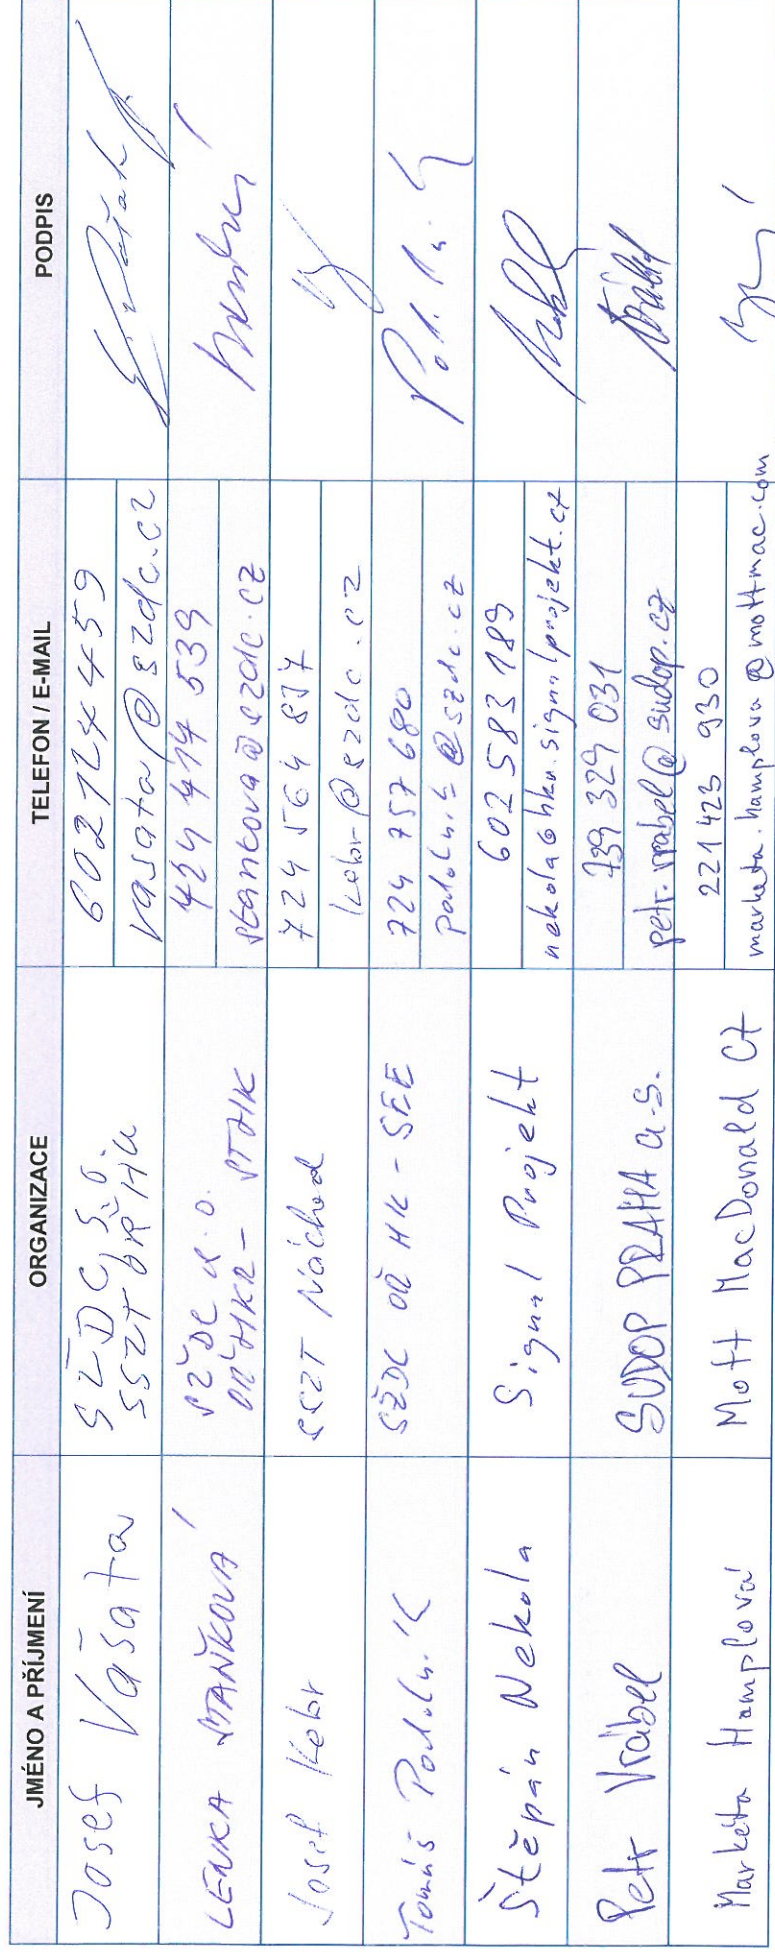 JMÉNO A PŘÍJMENÍ ORGANIZACE TELEFON / E-MAIL PODPIS
Josef Vašata SŽDC, s.o. 602124459
SSZT OŘ HK vasata@szdc.cz
LENKA STAŇKOVÁ SŽDC s.o. 424 414 539
OŘ HKR - STHK stankova@szdc.cz
Josef Kebr SSZT Náchod 724 564 837
kebr@szdc.cz
Tomáš SŽDC OŘ HK - SEE 724 757 680
@szdc.cz
Štěpán Nekola Signal Projekt 602 583 189
nekola@hka.signalprojekt.cz
Petr Vrábel SUDOP PRAHA a.s. 739 329 031
petr.vrabel@sudop.cz
Markéta Hamplová Mott MacDonald CZ 221 423 930
marketa.hamplova@mottmac.com